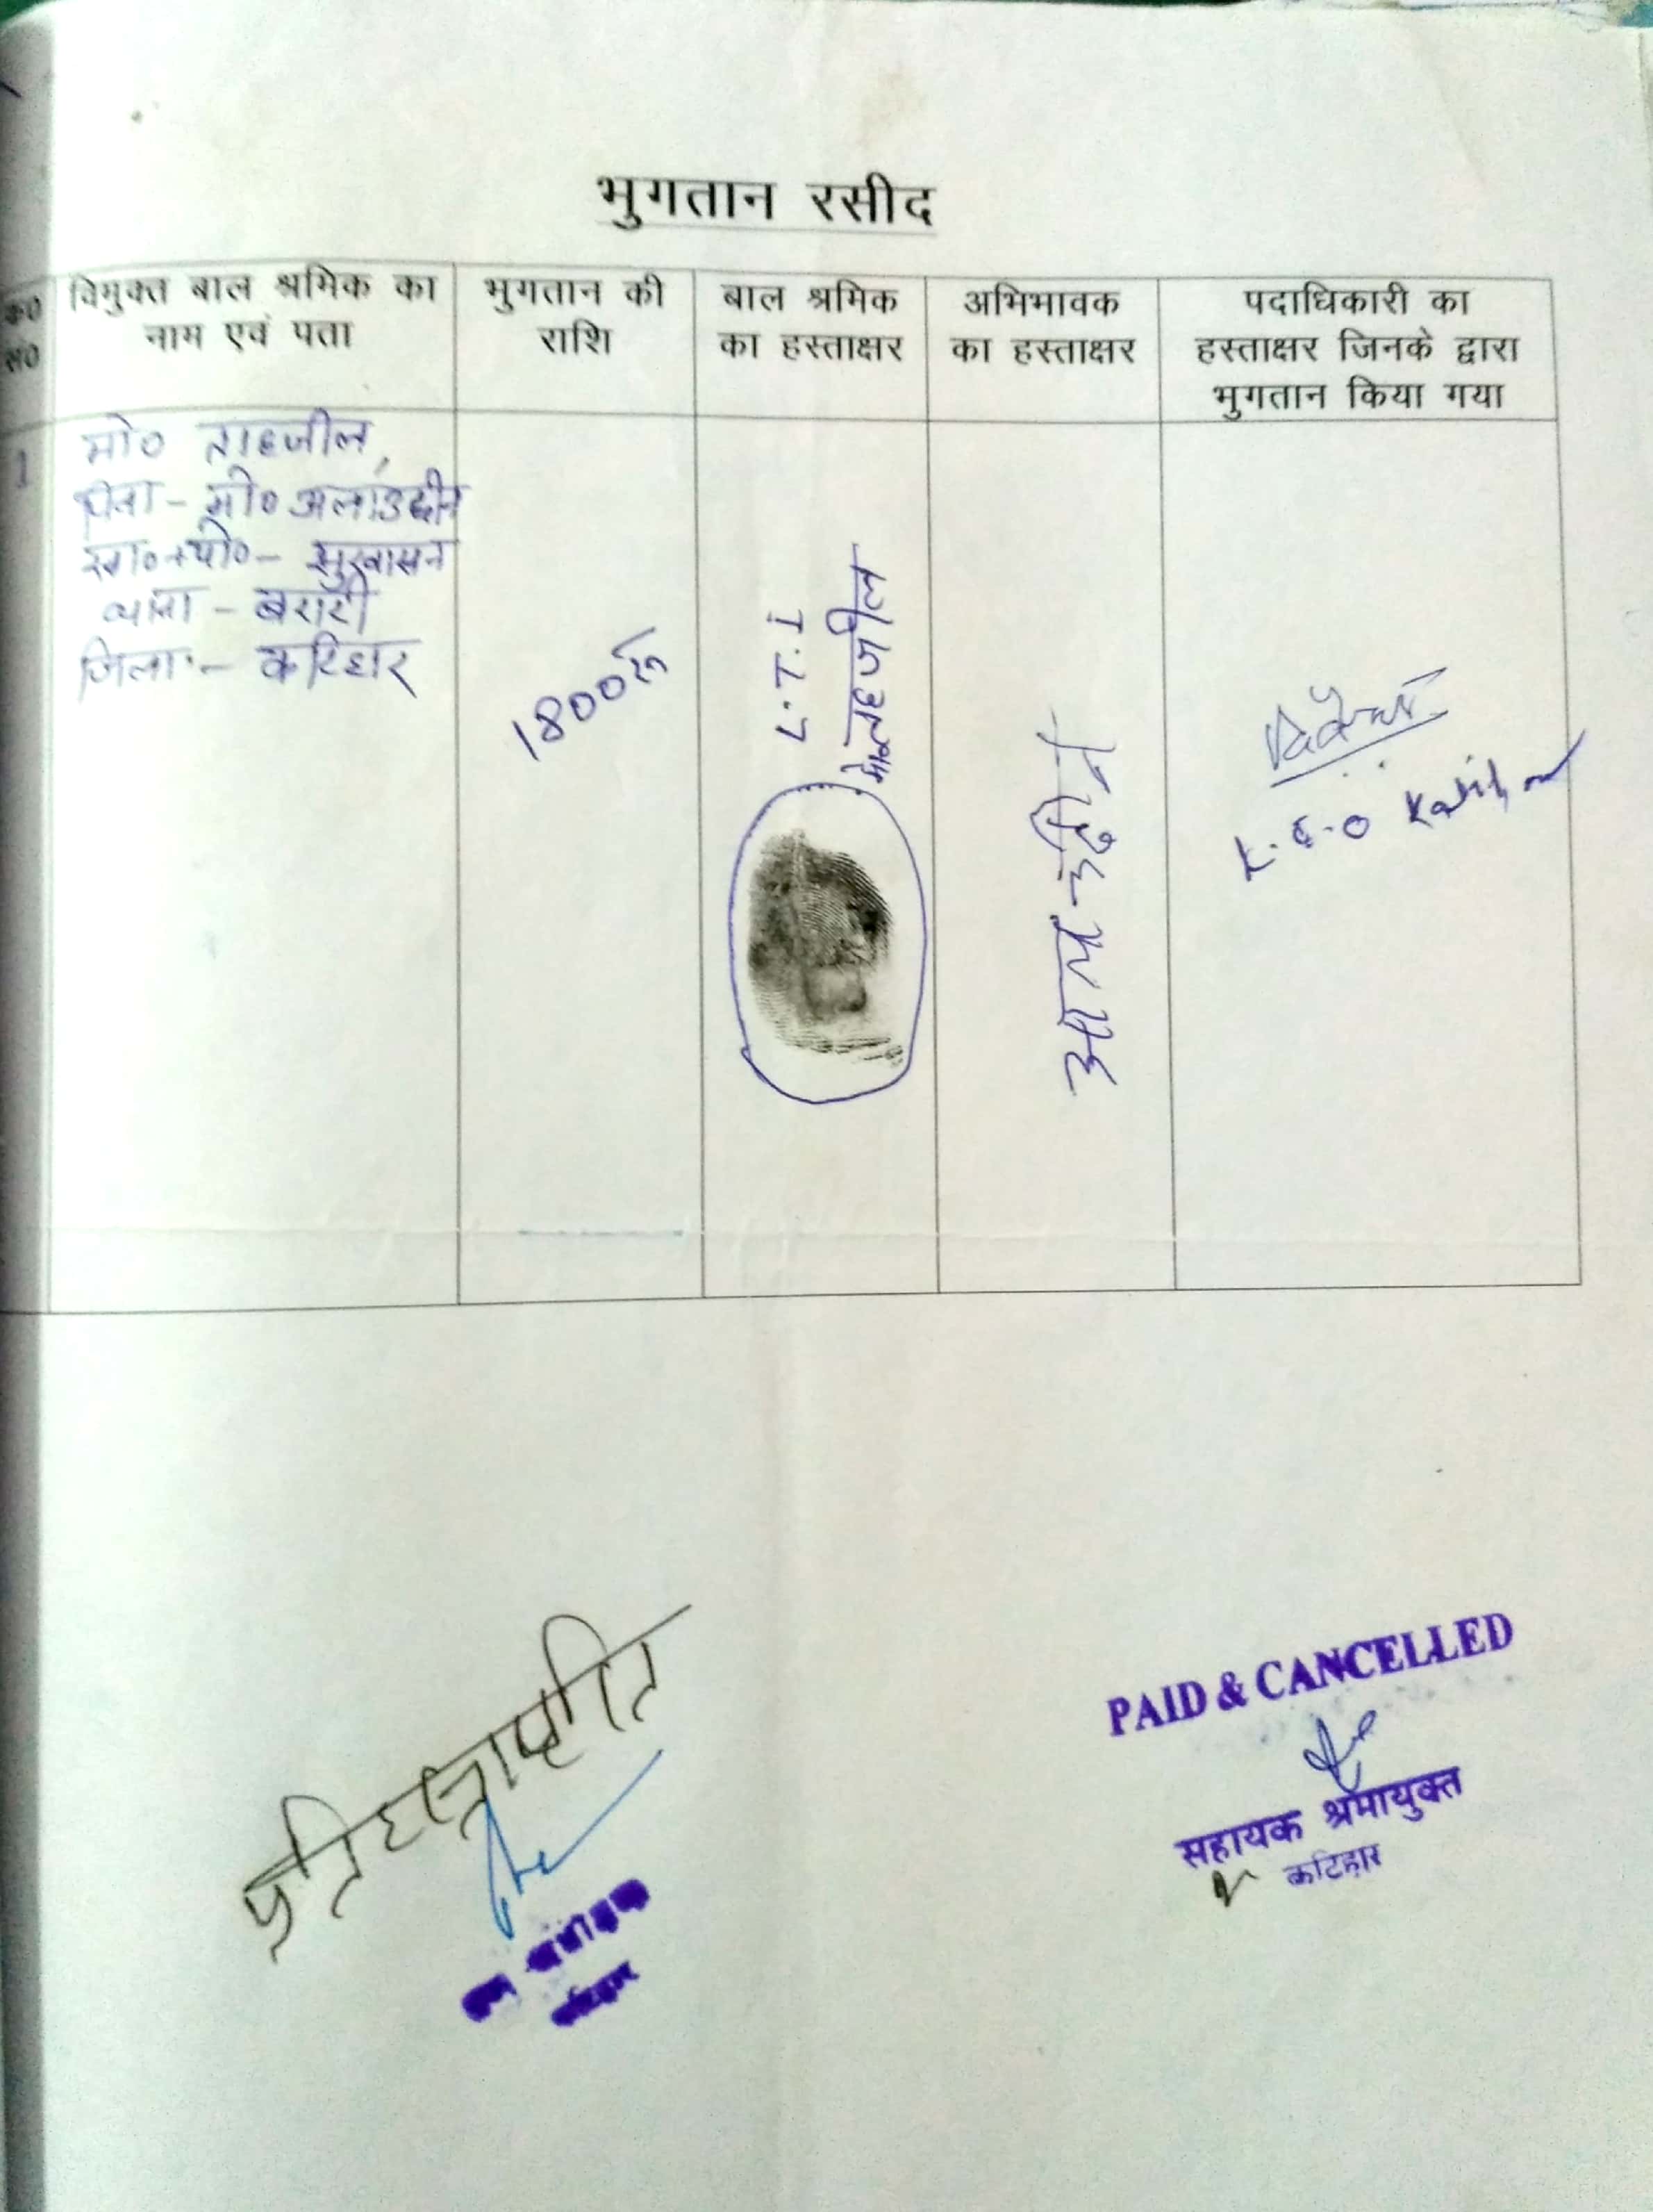 भुगतान रसीद
क्र० स०
विमुक्त बाल श्रमिक का नाम एवं पता
भुगतान की राशि
बाल श्रमिक का हस्ताक्षर
अभिभावक का हस्ताक्षर
पदाधिकारी का हस्ताक्षर जिनके द्वारा भुगतान किया गया
1
मो० ताहजील,
पिता - मो० अलाउद्दीन
सा०+पो० - सुखासन
थाना - बरारी
जिला - कटिहार
1800रु
L.T.I
मो० तहजील
L.E.O Katihar
प्रतिहस्ताक्षरित
PAID & CANCELLED
सहायक श्रमायुक्त
कटिहार